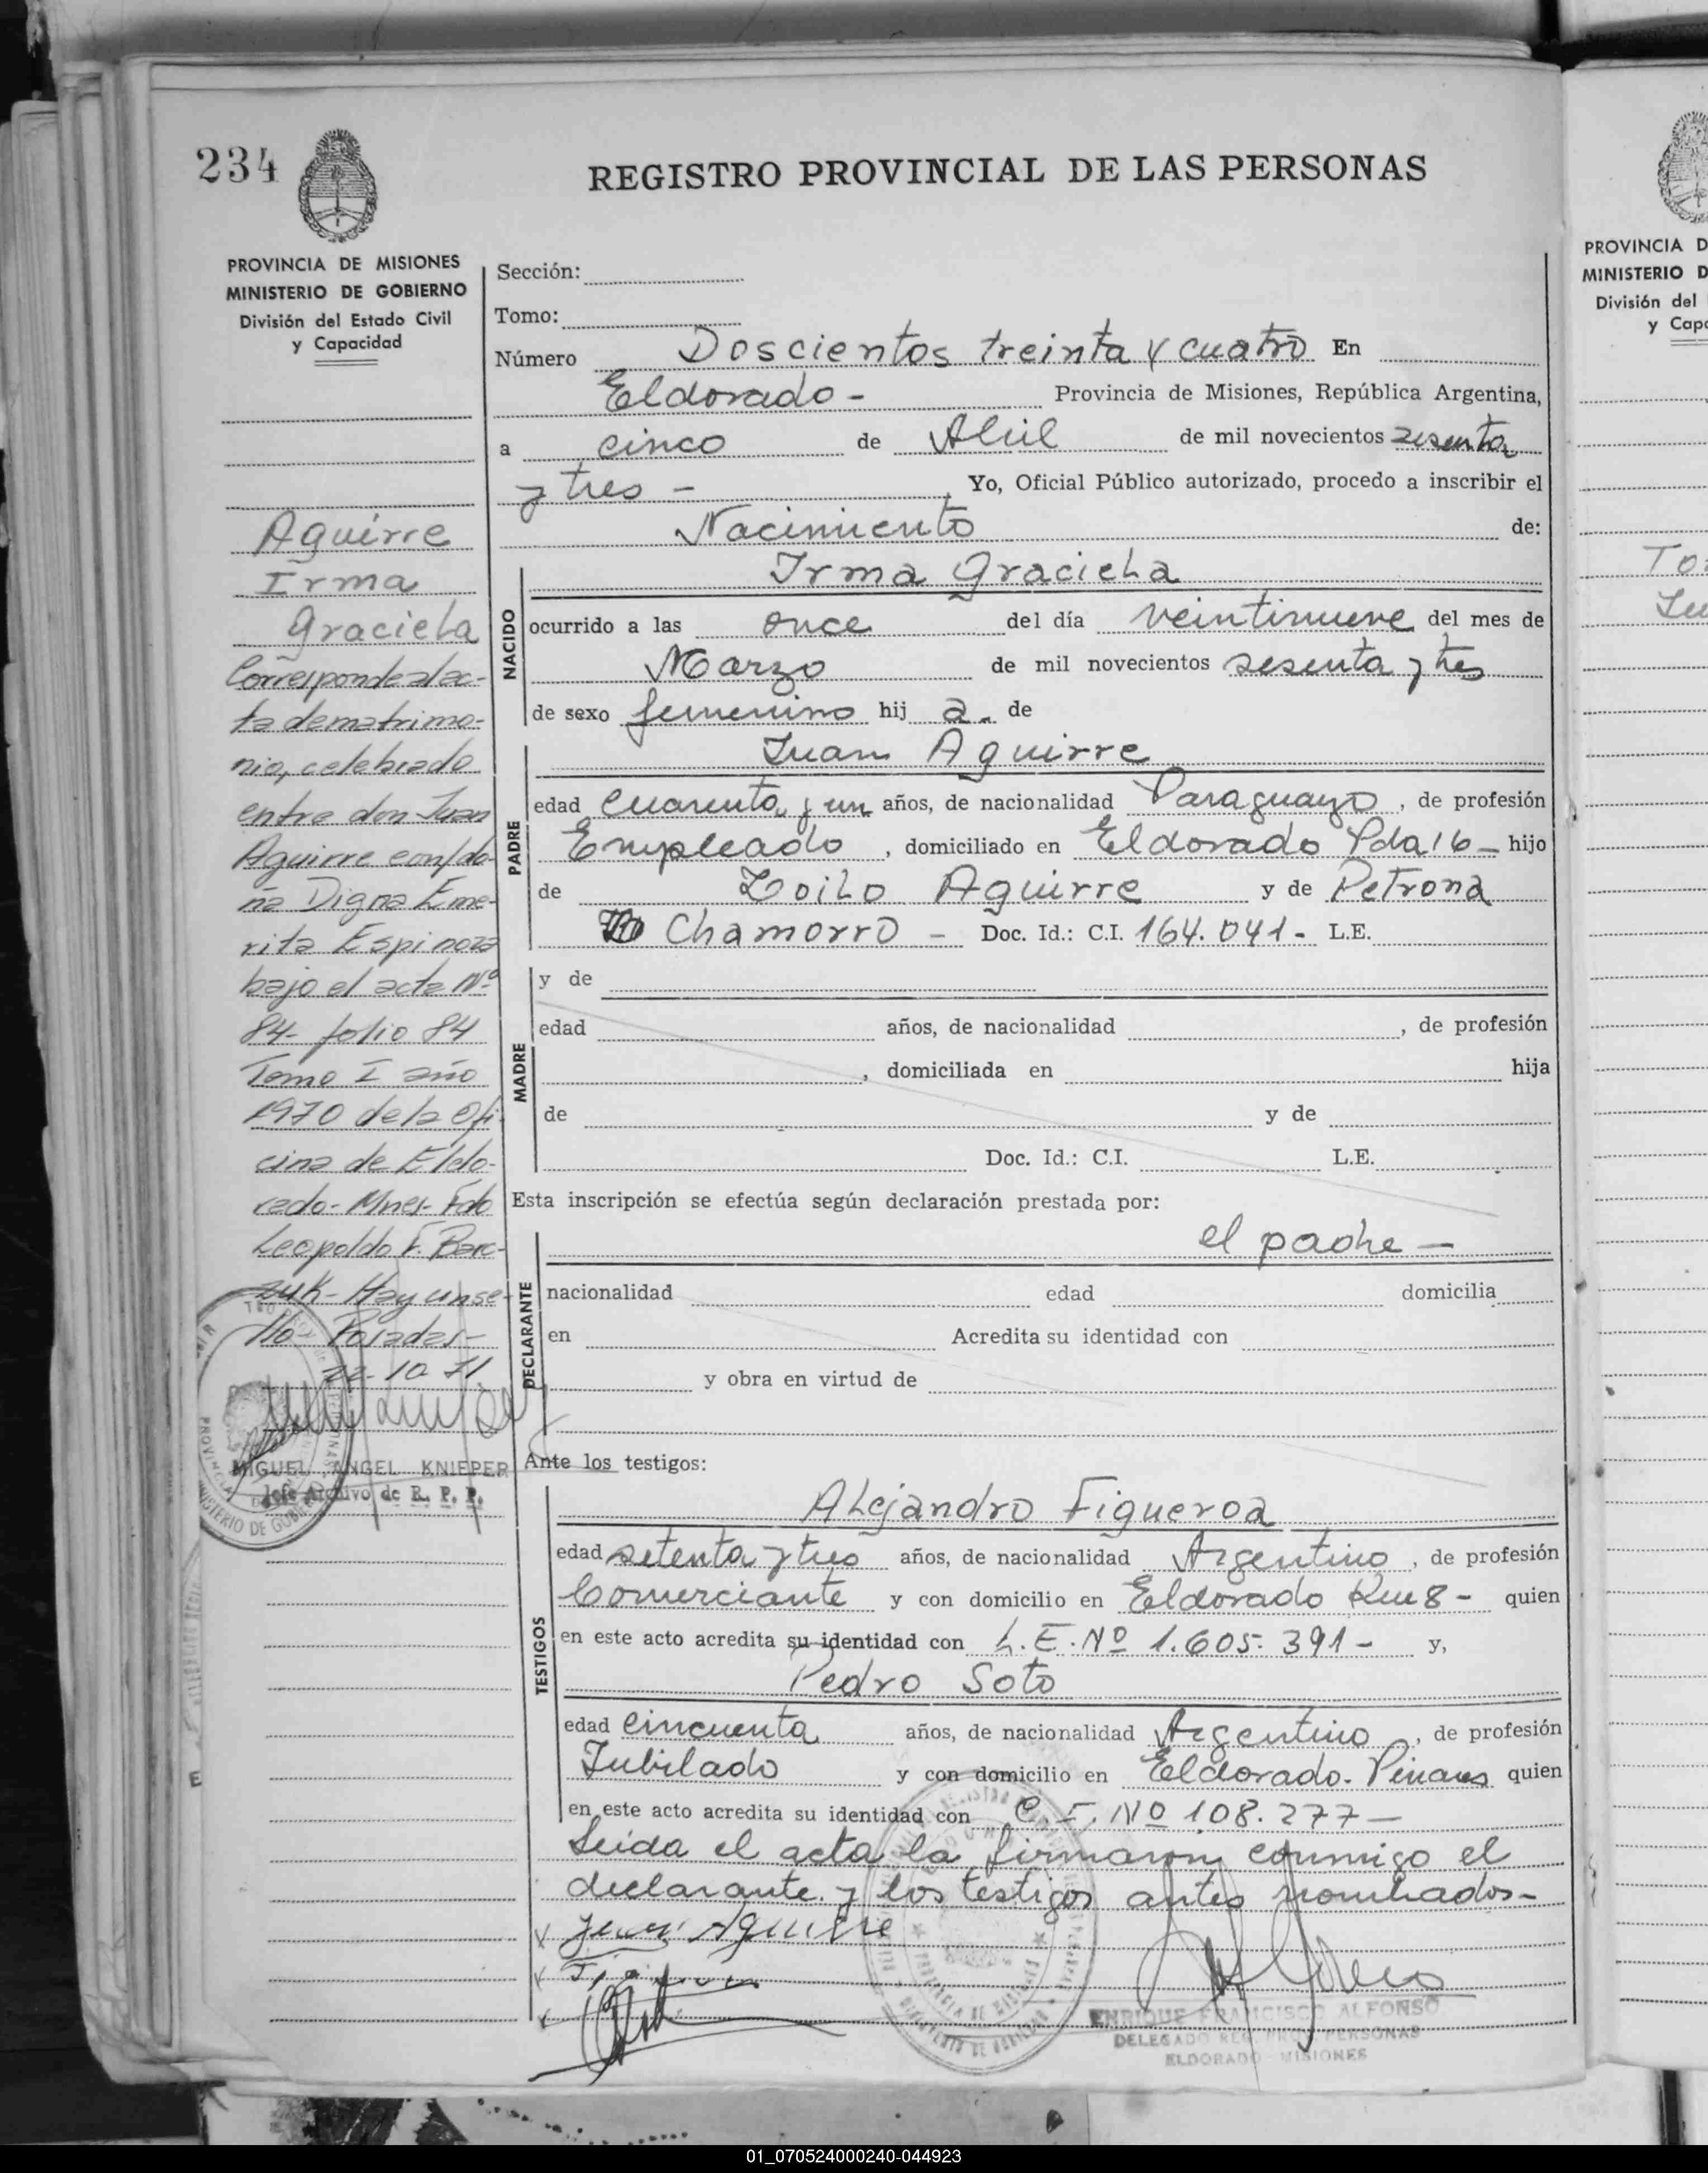 234
REGISTRO PROVINCIAL DE LAS PERSONAS
PROVINCIA DE MISIONES
MINISTERIO DE GOBIERNO
División del Estado Civil
y Capacidad
Aguirre
Irma
Graciela
Corresponde al ac-
ta de matrimo-
nio, celebrado
entre don Juan
Aguirre con/do-
ña Digna Eme-
rita Espinoza
bajo el acta Nº
84- folio 84
Tomo I año
1970 de la Ofi
cina de Eldo-
rado- Mnes- Fdo
Leopoldo F. Barc-
zuk- Hay un se-
llo- Posadas-
22-10-71.
MIGUEL ANGEL KNIEPER
Jefe Archivo de R. P. P.
Sección:
Tomo:
Número Doscientos treinta y cuatro En
Eldorado - Provincia de Misiones, República Argentina,
a cinco de Abril de mil novecientos sesenta
y tres - Yo, Oficial Público autorizado, procedo a inscribir el
Nacimiento de:
NACIDO
Irma Graciela
ocurrido a las once del día veintinueve del mes de
Marzo de mil novecientos sesenta y tres
de sexo femenino hij a. de
PADRE
Juan Aguirre
edad cuarenta y un años, de nacionalidad Paraguayo, de profesión
Empleado, domiciliado en Eldorado Pda 16 - hijo
de Zoilo Aguirre y de Petrona
Chamorro - Doc. Id.: C.I. 164.041- L.E.
MADRE
y de
edad años, de nacionalidad , de profesión
, domiciliada en hija
de y de
Doc. Id.: C.I. L.E.
Esta inscripción se efectúa según declaración prestada por:
DECLARANTE
el padre -
nacionalidad edad domicilia
en Acredita su identidad con
y obra en virtud de
Ante los testigos:
TESTIGOS
Alejandro Figueroa
edad setenta y tres años, de nacionalidad Argentino, de profesión
Comerciante y con domicilio en Eldorado Km 8 - quien
en este acto acredita su identidad con L.E. Nº 1.605.391- y,
Pedro Soto
edad cincuenta años, de nacionalidad Argentino, de profesión
Jubilado y con domicilio en Eldorado. Pinares quien
en este acto acredita su identidad con C.I. Nº 108.277-
Leida el acta la firmaron conmigo el
declarante y los testigos antes nombrados-
Juan Aguirre
ENRIQUE FRANCISCO ALFONSO
DELEGADO REG. PROV. PERSONAS
ELDORADO - MISIONES
PROVINCIA D
MINISTERIO D
División del
y Capa
01_070524000240-044923